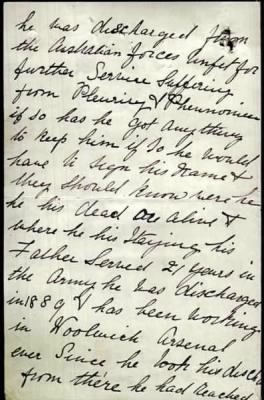 he was discharged from
the Australian forces unfit for
further Service Suffering
from Pleurisy & Phenomonia
if so has he got anything
to keep him if so he would
have to sign his name &
they should know were he
he his dead or alive &
where he his staying his
Father Served 21 years in
the Army he was discharged
in 1889 & has been working
in Woolwich Arsenal
ever Since he took his disch
from there he had reached